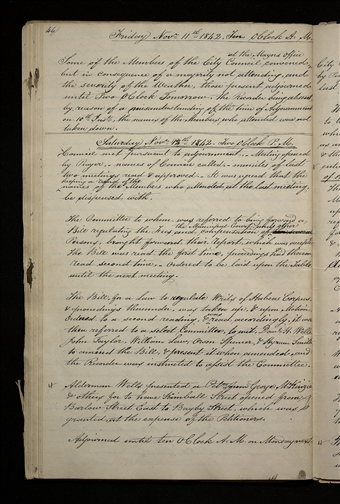 46
Friday Nov. 11th 1842. Ten O'Clock A. M.
at the Mayor's office
Some of the Members of the City Council convened,
but in consequence of a majority not attending, and
the severity of the Weather, those present adjourned
until Two O'Clock Tomorrow. The Recorder being absent
by reason of a misunderstanding of the time of Adjournment
on 10th Inst., the names of the Members who attended was not
taken down.
Saturday, Nov. 12th 1842. Two O'Clock P. M.
Council met pursuant to adjournment. Meeting opened
by Prayer. names of Council called. minutes of last
two meetings read & approved. It was agreed that the
keeping a
minutes of the Members who attended at the last meeting
be dispensed with.
The Committee to whom was referred to bring forward a
Bill regulating the fees and compensation of
Persons, brought forward their report, which was
The Bill was read the first time,
read second time, & ordered to be laid upon the Table
until the next meeting.
The Bill, for a Law to regulate Writs of Habeas Corpus,
& proceedings thereunder, was taken up, & upon Motion
ordered to a second reading, & read accordingly, it was
then referred to a select Committee, to wit, Danl. H. Wells
John Taylor, William Law, Orson Spencer, & Hyrum Smith
to amend the Bill, & present it when amended, and
the Recorder was instructed to assist the Committee.
Alderman Wells presented a Petn. from George W.
& others for to have Kimball Street opened from
Barlow Street East to Bagby Street, which was
granted at the expense of the Petitioners.
Adjourned until ten O'Clock A. M. on Monday